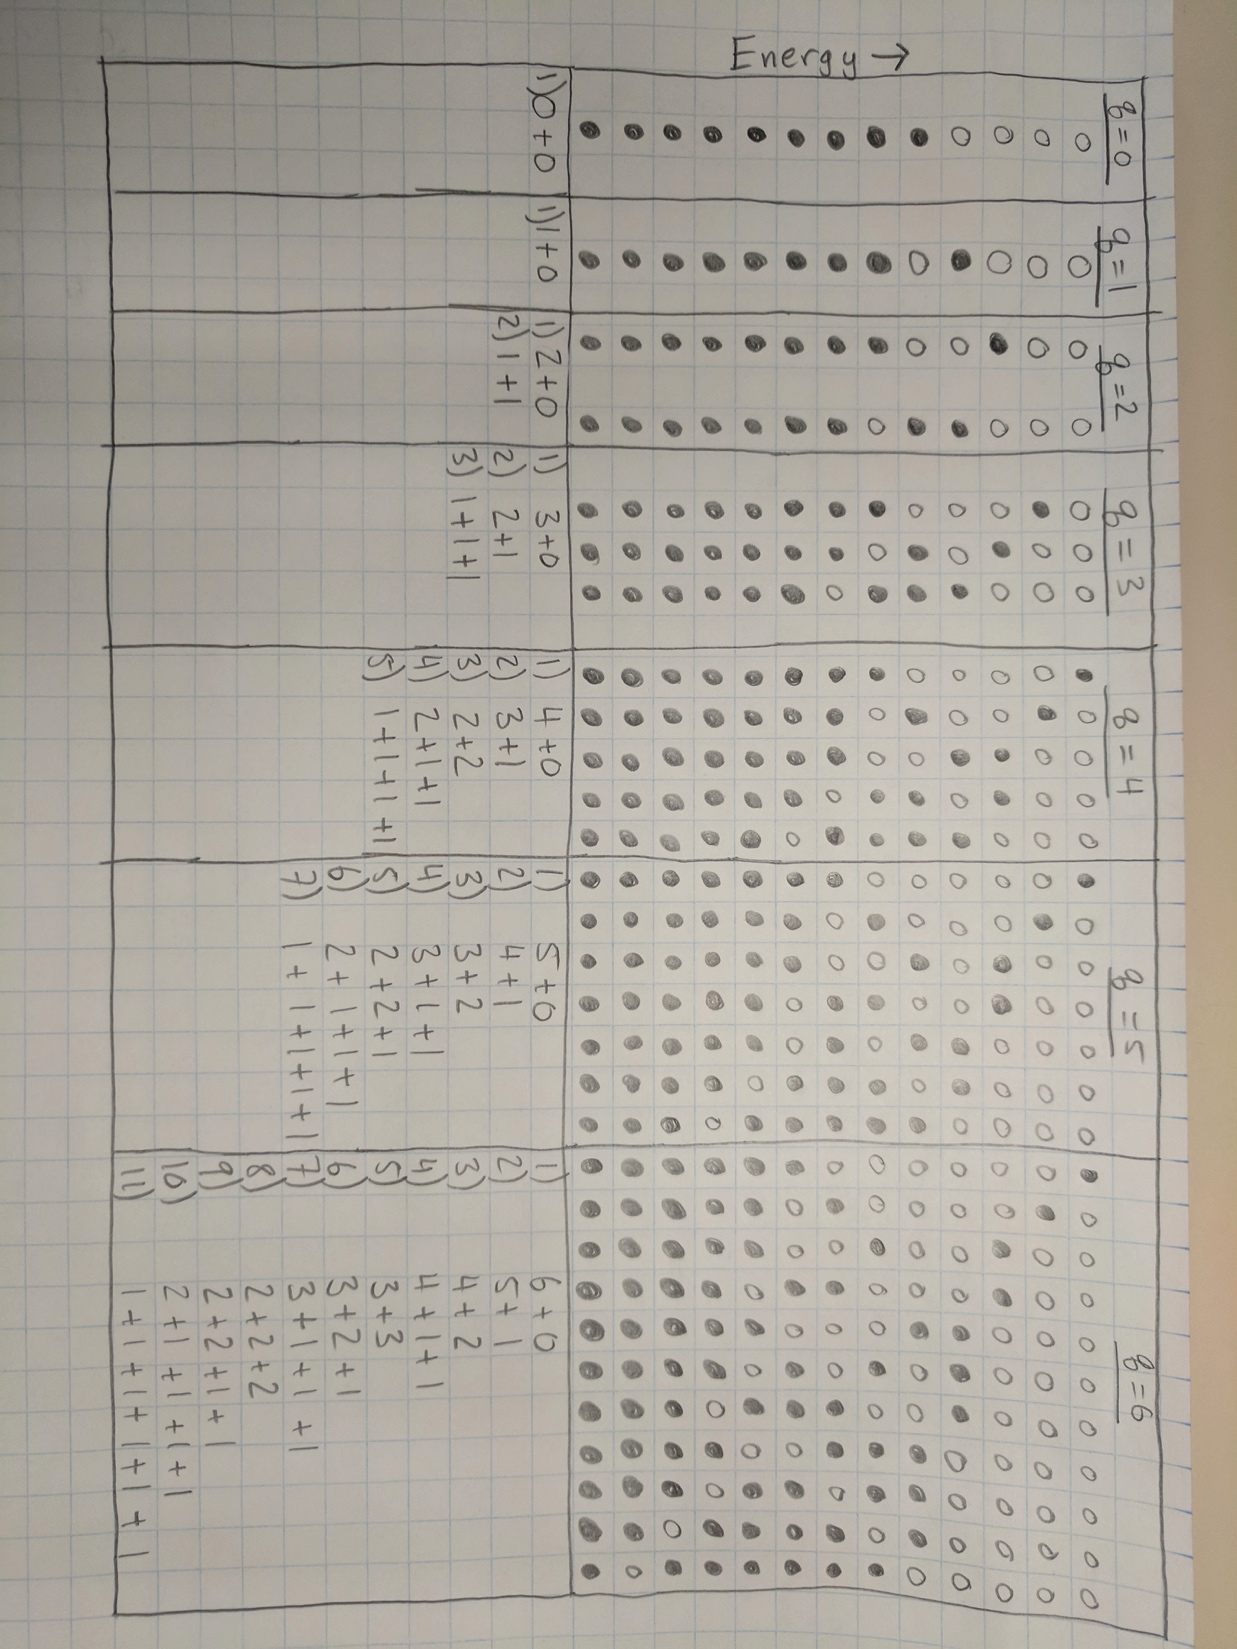 Energy →
q=0
1) 0+0
q=1
1) 1+0
q=2
1) 2+0
2) 1+1
q=3
1) 3+0
2) 2+1
3) 1+1+1
q=4
1) 4+0
2) 3+1
3) 2+2
4) 2+1+1
5) 1+1+1+1
q=5
1) 5+0
2) 4+1
3) 3+2
4) 3+1+1
5) 2+2+1
6) 2+1+1+1
7) 1+1+1+1+1
q=6
1) 6+0
2) 5+1
3) 4+2
4) 4+1+1
5) 3+3
6) 3+2+1
7) 3+1+1+1
8) 2+2+2
9) 2+2+1+1
10) 2+1+1+1+1
11) 1+1+1+1+1+1